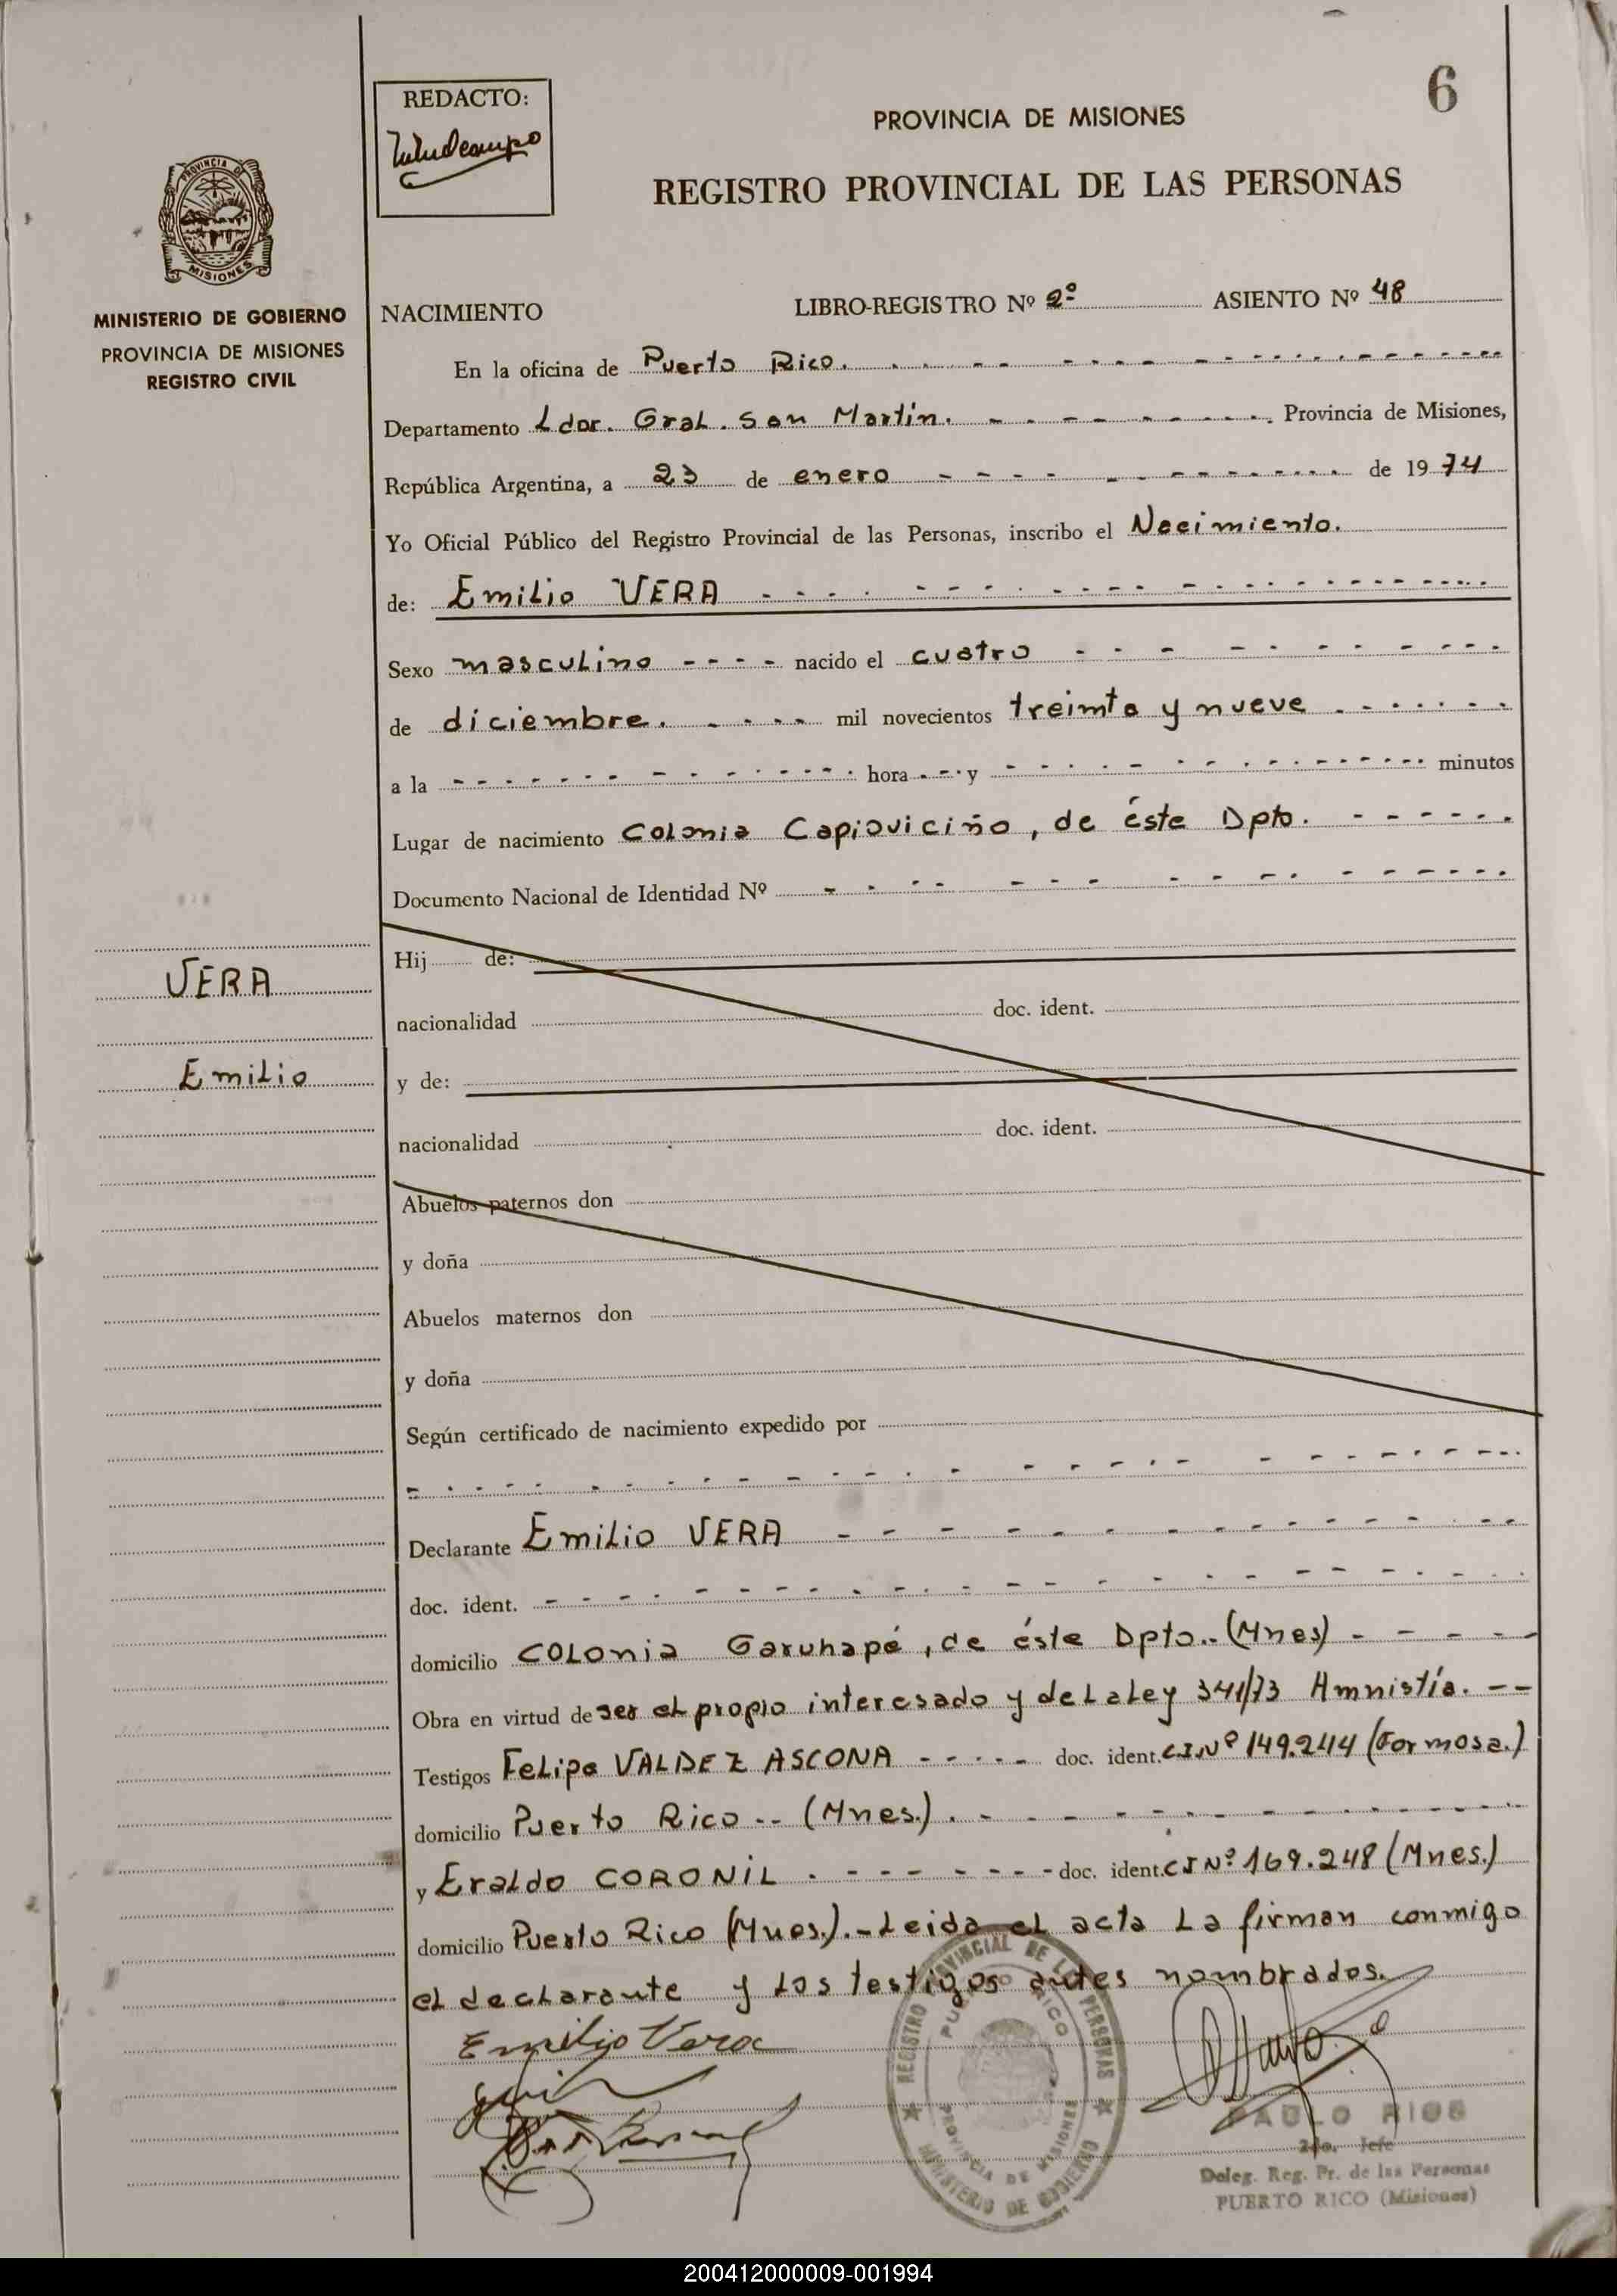 REDACTO:
6
PROVINCIA DE MISIONES
REGISTRO PROVINCIAL DE LAS PERSONAS
PROVINCIA DE
MISIONES
MINISTERIO DE GOBIERNO
PROVINCIA DE MISIONES
REGISTRO CIVIL
NACIMIENTO LIBRO-REGISTRO Nº 2º ASIENTO Nº 48
En la oficina de Puerto Rico.
Departamento Ldor. Gral. San Martín. Provincia de Misiones,
República Argentina, a 23 de enero de 1974
Yo Oficial Público del Registro Provincial de las Personas, inscribo el Nacimiento.
de: Emilio VERA
Sexo masculino nacido el cuatro
de diciembre. mil novecientos treinta y nueve
a la hora y minutos
Lugar de nacimiento Colonia Capioviciño, de éste Dpto.
Documento Nacional de Identidad Nº
Hij de:
VERA
nacionalidad doc. ident.
Emilio
y de:
nacionalidad doc. ident.
Abuelos paternos don
y doña
Abuelos maternos don
y doña
Según certificado de nacimiento expedido por
Declarante Emilio VERA
doc. ident.
domicilio Colonia Garuhapé, de éste Dpto.. (Mnes)
Obra en virtud de ser el propio interesado y de La Ley 341/73 Amnistía. --
Testigos Felipa VALDEZ ASCONA doc. ident. C.I.Nº 149.244 (Formosa.)
domicilio Puerto Rico -- (Mnes.).
y Eraldo CORONIL. doc. ident. CI Nº 169.248 (Mnes.)
domicilio Puerto Rico (Mnes.).- Leida el acta La firman conmigo
el declarante y Los testigos antes nombrados.
Emilio Vera
REGISTRO PROVINCIAL DE LAS PERSONAS
PUERTO RICO
PROVINCIA DE MISIONES
MINISTERIO DE GOBIERNO
PAULO RIOS
2do. Jefe
Deleg. Reg. Pr. de las Personas
PUERTO RICO (Misiones)
200412000009-001994